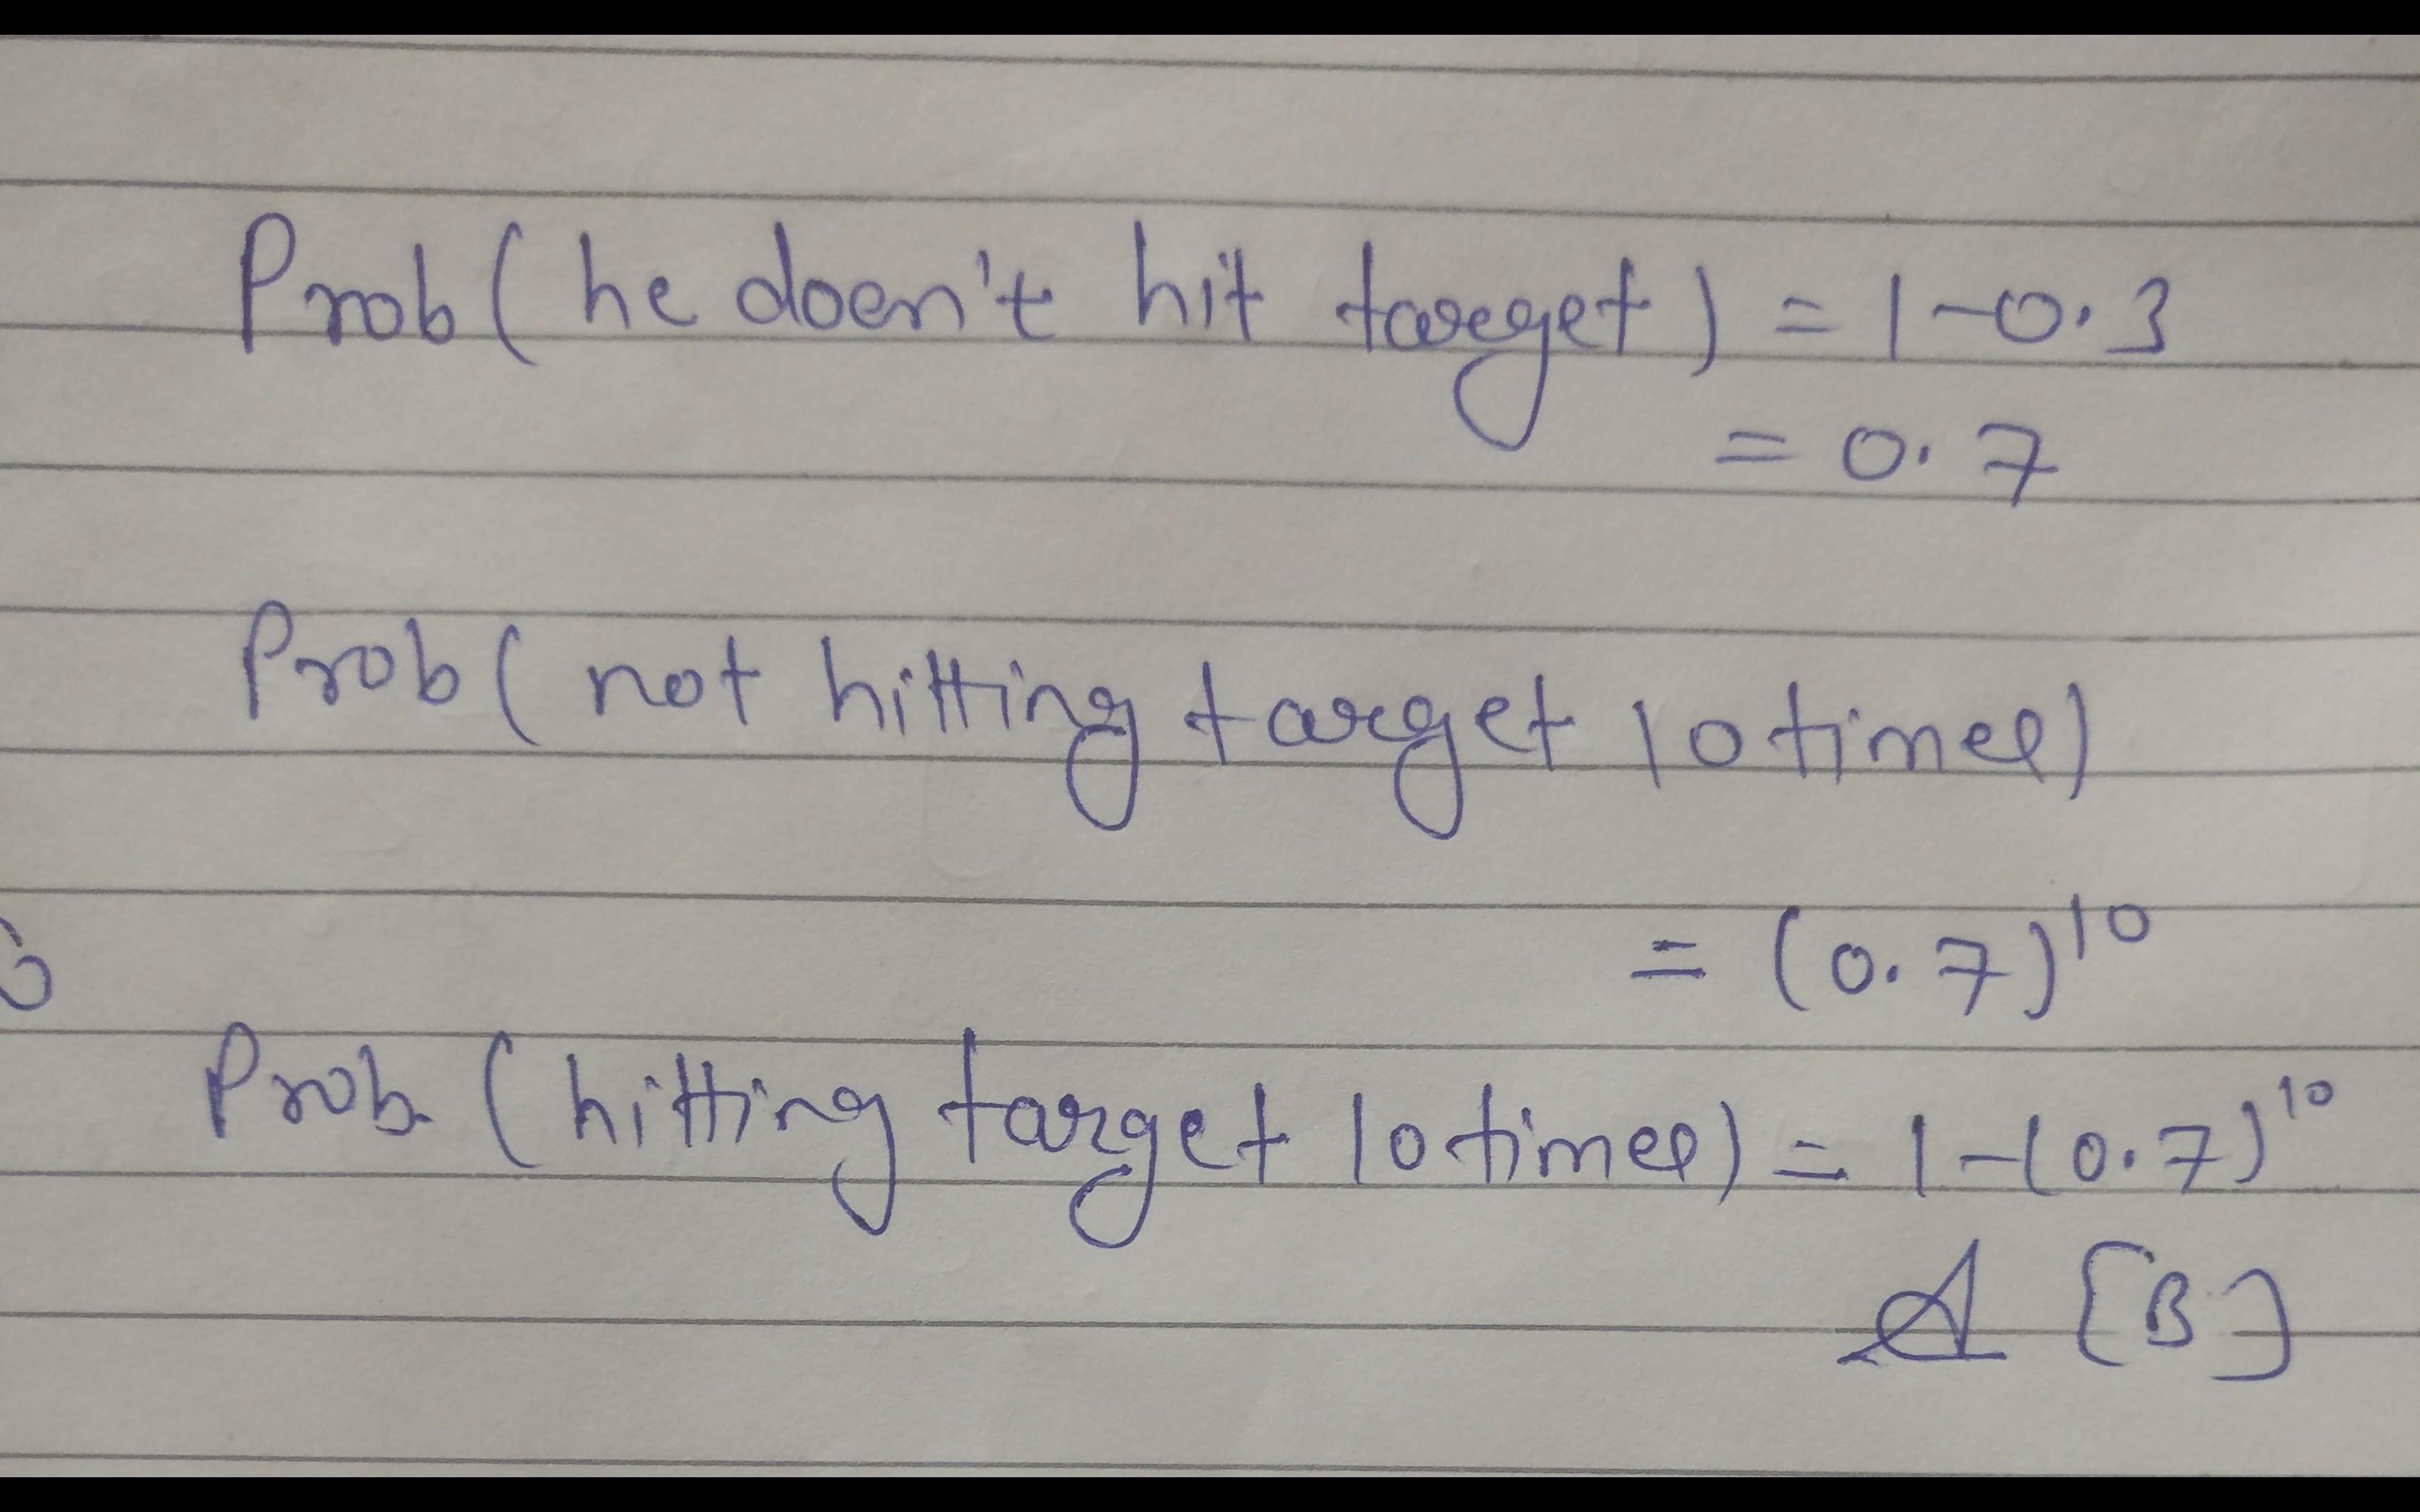 Prob ( he doen't hit target ) = 1 - 0.3
= 0.7
Prob ( not hitting target 10 times )
= (0.7)^10
Prob. ( hitting target 10 times ) = 1 - (0.7)^10
A [B]